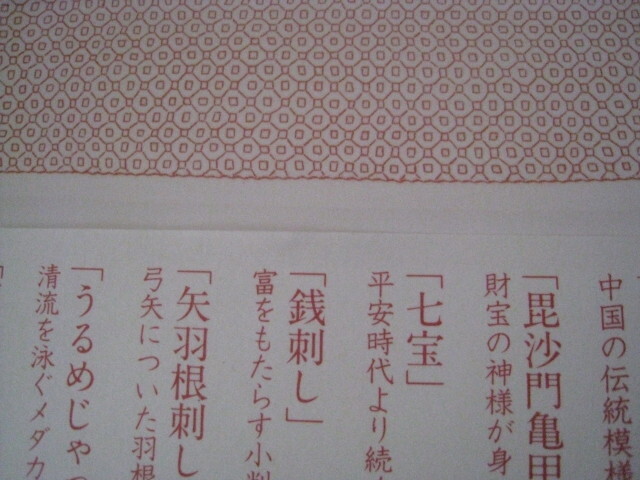 中国の伝統模様
「毘沙門亀甲
財宝の神様が身
「七宝」
平安時代より続
「銭刺し」
富をもたらす小判
「矢羽根刺し
弓矢についた羽根
「うるめじゃ
清流を泳ぐメダカ